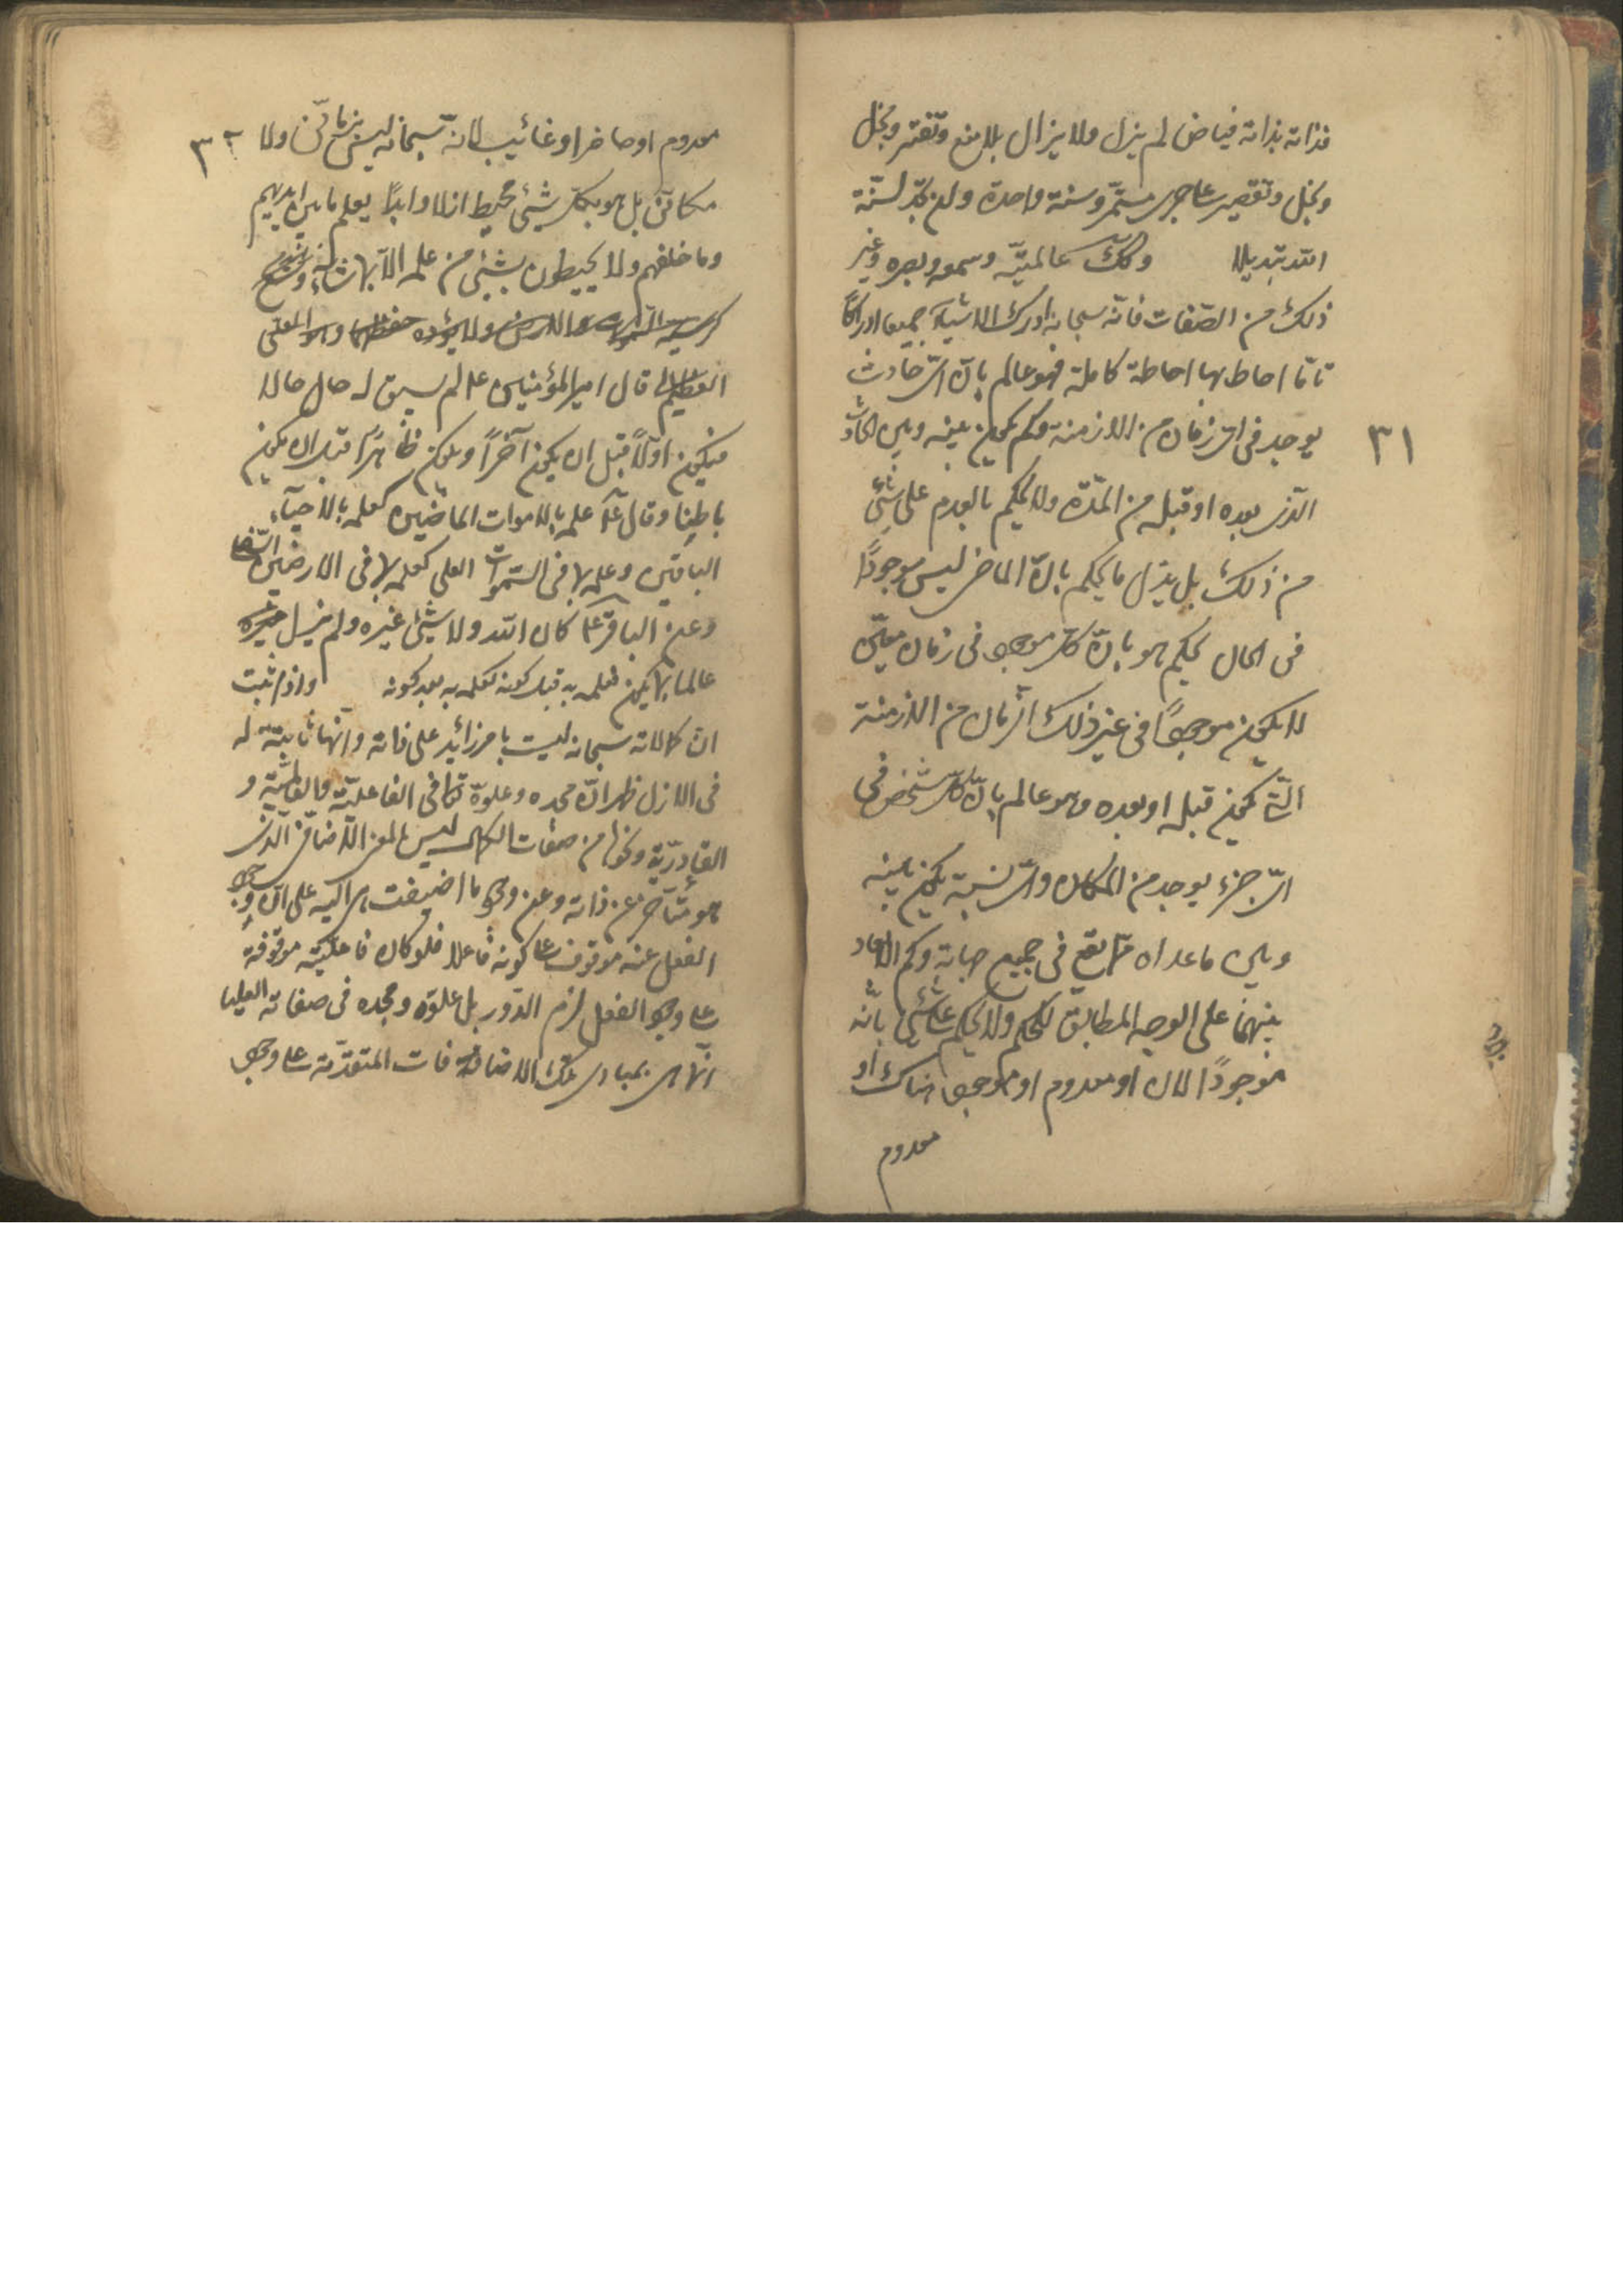 فذاته بذاته فياض لم يزل ولا يزال بلا منع وتقتير وبخل
وبخل وتقصير على جرى مستمر وسنة واحدة ولن تجد لسنة
الله تبديلا وكك عالميته وسمعه وبصره وغير
ذلك من الصفات فانه سبحانه ادرك الاشياء جميعا ادراكا
تاما احاط بها احاطة كاملة فهو عالم بان اى حادث
يوجد فى اى زمان من الازمنة وكم يكون بينه وبين الحادث
٣١
الذى بعده او قبله من المدة ولا يحكم بالعدم على شئ
من ذلك بل بدل ما يحكم بان الماضى ليس موجودًا
فى الحال يحكم هو بان كل موجود فى زمان معين
لا يكون موجودًا فى غير ذلك الزمان من الازمنة
التى يكون قبله او بعده وهو عالم بان كل شخص فى
اى جزء يوجد من المكان واى نسبة يكون بينه
وبين ما عداه مما يقع فى جميع جهاته وكم الابعاد
بينهما على الوجه المطابق للحكم ولا يحكم على شئ بانه
موجودًا الان او معدوم او موجود هناك او
معدوم
معدوم او حاضر او غائب لانه سبحانه ليس بزمانى ولا
٣٢
مكانى بل هو بكل شئ محيط ازلا وابدًا يعلم ما بين ايديهم
وما خلفهم ولا يحيطون بشئ من علمه الا بما شاء وسع
كرسيه السموات والارض ولا يؤده حفظهما وهو العلى
العظيم قال امير المؤمنين ع لم يسبق له حال حالا
فيكون اولًا قبل ان يكون آخرًا ويكون ظاهرًا قبل ان يكون
باطنا وقال ع علمه بالاموات الماضين كعلمه بالاحياء
الباقين وعلمه بما فى السموات العلى كعلمه بما فى الارضين السفلى
وعن الباقر ع كان الله ولا شئ غيره ولم يزل
عالما بما يكون فعلمه به قبل كونه كعلمه به بعد كونه واذ ثبت
ان كمالاته سبحانه ليست بامر زائد على ذاته وانها ثابتة له
فى الازل ظهر ان مجده وعلوه تعالى فى الفاعلية والعالمية و
القادرية ونحوها من صفات الكمال ليس المعنى الاضافى الذى
هو متاخر عن ذاته وعن وجود ما اضيفت هى اليه على ان وجود
الفعل عنه موقوف على كونه فاعلا فلو كان فاعليته موقوفة
على وجود الفعل لزم الدور بل علوه ومجده فى صفاته العليا
انما هى بمبادى تلك الاضافات المتقدمة على وجود